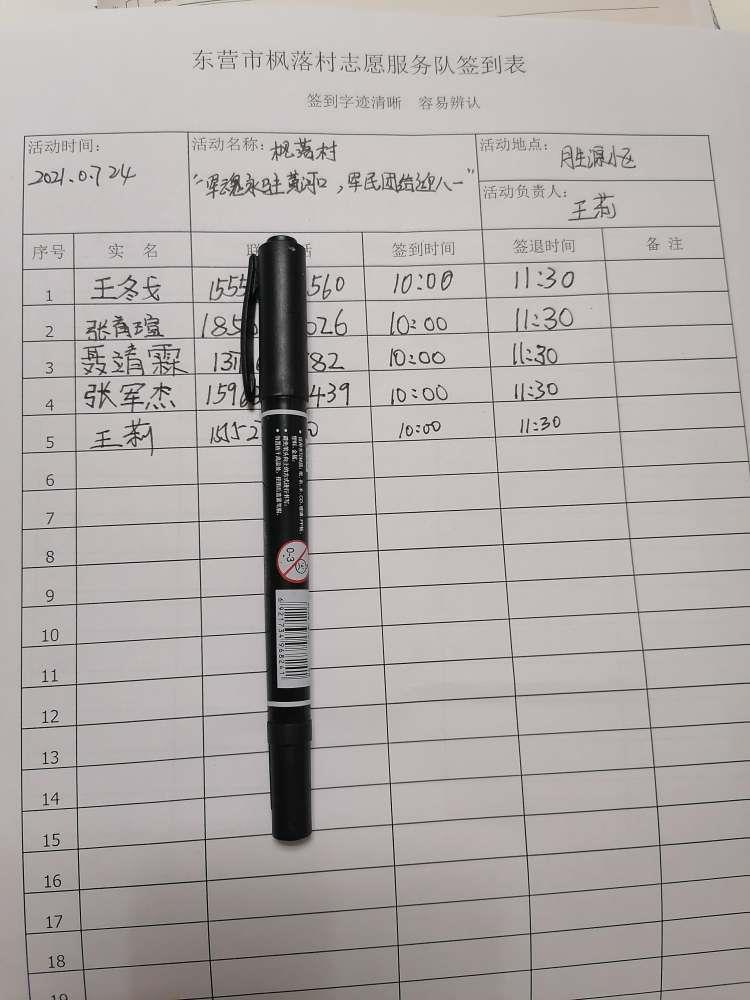 东营市枫落村志愿服务队签到表
签到字迹清晰 容易辨认
活动时间: 2021.0.7 24
活动名称: 枫落村
"军魂永驻黄河口,军民团结迎八一"
活动地点: 胜源小区
活动负责人: 王莉
序号 实 名 联 话 签到时间 签退时间 备 注
1 王冬戈 1555 560 10:00 11:30
2 张育瑄 185 026 10:00 11:30
3 聂靖霖 131 82 10:00 11:30
4 张军杰 159 439 10:00 11:30
5 王莉 15552 0 10:00 11:30
6
7
8
9
10
11
12
13
14
15
16
17
18
19
0-3
6921734968241